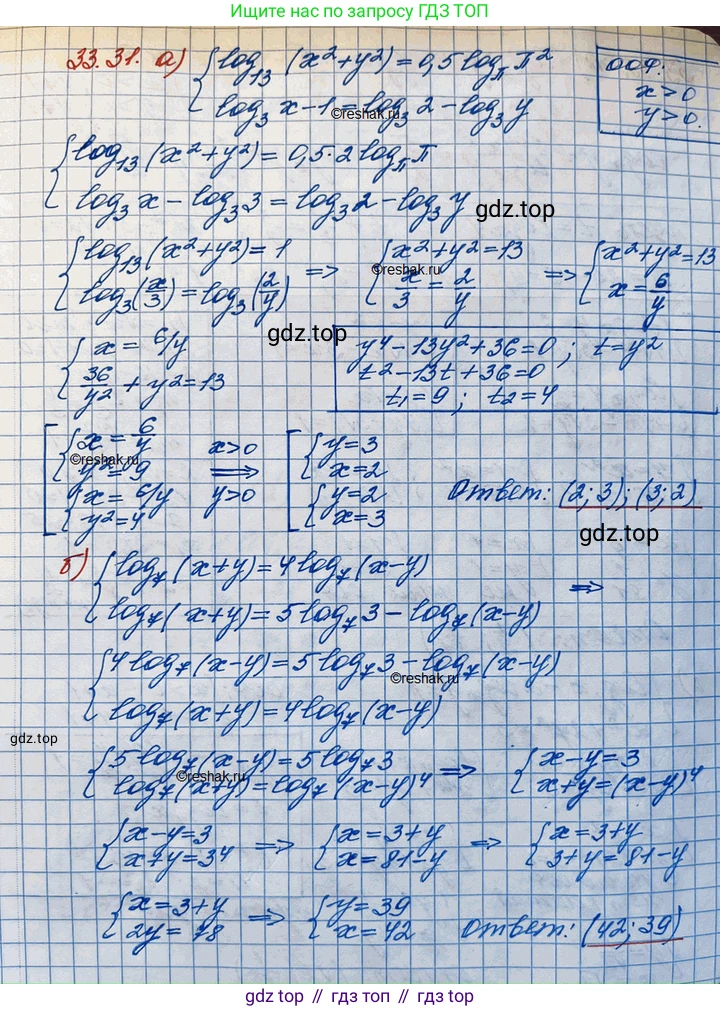 Ищите нас по запросу ГДЗ ТОП
33.31. а) { log₁₃ (x²+y²) = 0,5 log_π π²
log₃ x - 1 = log₃ 2 - log₃ y
ООФ:
x>0
y>0.
©reshak.ru
{ log₁₃ (x²+y²) = 0,5·2 log_π π
log₃ x - log₃ 3 = log₃ 2 - log₃ y
gdz.top
{ log₁₃ (x²+y²) = 1
log₃ (x/3) = log₃ (2/y)
=> { x²+y² = 13
x/3 = 2/y
=> { x²+y² = 13
x = 6/y
©reshak.ru
gdz.top
{ x = 6/y
36/y² + y² = 13
y⁴ - 13y² + 36 = 0 ; t = y²
t² - 13t + 36 = 0
t₁ = 9 ; t₂ = 4
[ { x = 6/y
y² = 9
{ x = 6/y
y² = 4
x>0
=>
y>0
[ { y = 3
x = 2
{ y = 2
x = 3
©reshak.ru
Ответ: (2; 3); (3; 2)
gdz.top
б) { log₇ (x+y) = 4 log₇ (x-y)
log₇ (x+y) = 5 log₇ 3 - log₇ (x-y)
=>
{ 4 log₇ (x-y) = 5 log₇ 3 - log₇ (x-y)
log₇ (x+y) = 4 log₇ (x-y)
©reshak.ru
gdz.top
{ 5 log₇ (x-y) = 5 log₇ 3
log₇ (x+y) = log₇ (x-y)⁴
=> { x-y = 3
x+y = (x-y)⁴
©reshak.ru
{ x-y = 3
x+y = 3⁴
=> { x = 3+y
x = 81-y
=> { x = 3+y
3+y = 81-y
{ x = 3+y
2y = 78
=> { y = 39
x = 42
Ответ: (42; 39)
gdz.top // гдз топ // gdz top